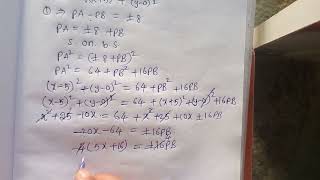 ① ⇒ PA - PB = ± 8
PA = ± 8 + PB
S. on. b. s
PA² = (± 8 + PB)²
PA² = 64 + PB² + 16PB
(x-5)² + (y-0)² = 64 + PB² + 16PB
(x-5)² + (y-0)² = 64 + (x+5)² + (y-0)² + 16PB
x² + 25 - 10x = 64 + x² + 25 + 10x ± 16PB
-20x - 64 = ± 16PB
-4(5x + 16) = ± 16PB